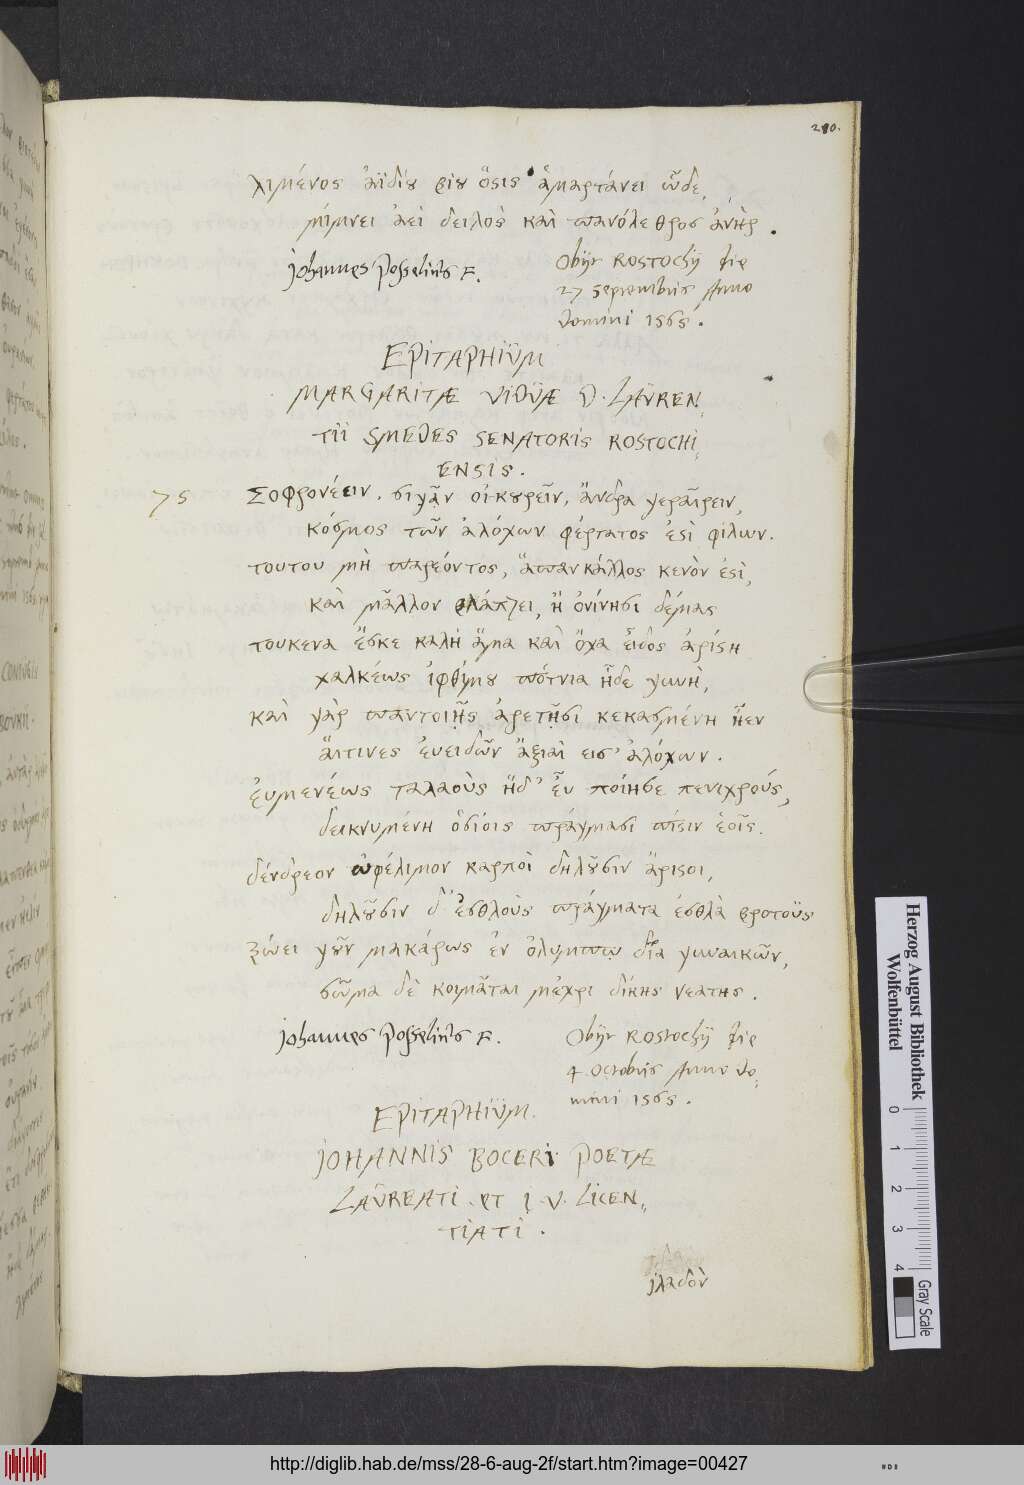 210.
λιμένος ἀϊδίου βίου ὅστις ἁμαρτάνει ὧδε,
μίμνει ἀεὶ δειλὸς καὶ πανόλεθρος ἀνὴρ.
Johannes Posselius F.
Obijt Rostochij die
27 Septembris Anno
Domini 1565.
EPITAPHIUM
MARGARITÆ VIDUÆ D. LAUREN,,
TII SMEDES SENATORIS ROSTOCHI,,
ENSIS.
75
Σοφρονέειν, σιγᾶν οἰκουρεῖν, ἄνδρα γεραίρειν,
κόσμος τῶν ἀλόχων φέρτατος ἐστὶ φίλων.
τουτου μὴ παρεόντος, ἅπαν κάλλος κενὸν ἐστὶ,
καὶ μᾶλλον βλάπτει, ἢ ὀνίνησι δέμας
τουκενα ἔσκε καλὴ ἅμα καὶ ὄχα εἶδος ἀρίστη
χαλκέως ἰφθίμου πότνια ἥδε γυνὴ,
καὶ γὰρ παντοιῇς ἀρετῇσι κεκασμένη ἦεν
αἵτινες ἐυειδῶν ἄξιαὶ εισ' ἀλόχων.
ἐυμενέως ταλαοὺς ἠδ' ἐῦ ποίησε πενιχρούς,
δεικνυμένη ὁσίοις πράγμασι πίστιν ἑοῖς.
δένδρεον ὠφέλιμον καρποὶ δηλοῦσιν ἄριστοι,
δηλοῦσιν δ' ἐσθλοὺς πράγματα ἐσθλὰ βροτοὺς
ζώει γοῦν μακάρως ἐν ὀλύμπῳ δῖα γυναικῶν,
σῶμα δὲ κοιμᾶται μέχρι δίκης νεατης.
Johannes Posselius F.
Obijt Rostochij die
4 Octobris Anno Do,,
mini 1565.
EPITAPHIUM.
JOHANNIS BOCERI POETÆ
LAUREATI et I. V. LICEN,,
TIATI.
ἰλαδὸν
Herzog August Bibliothek
Wolfenbüttel
0 1 2 3 4
Gray Scale
http://diglib.hab.de/mss/28-6-aug-2f/start.htm?image=00427